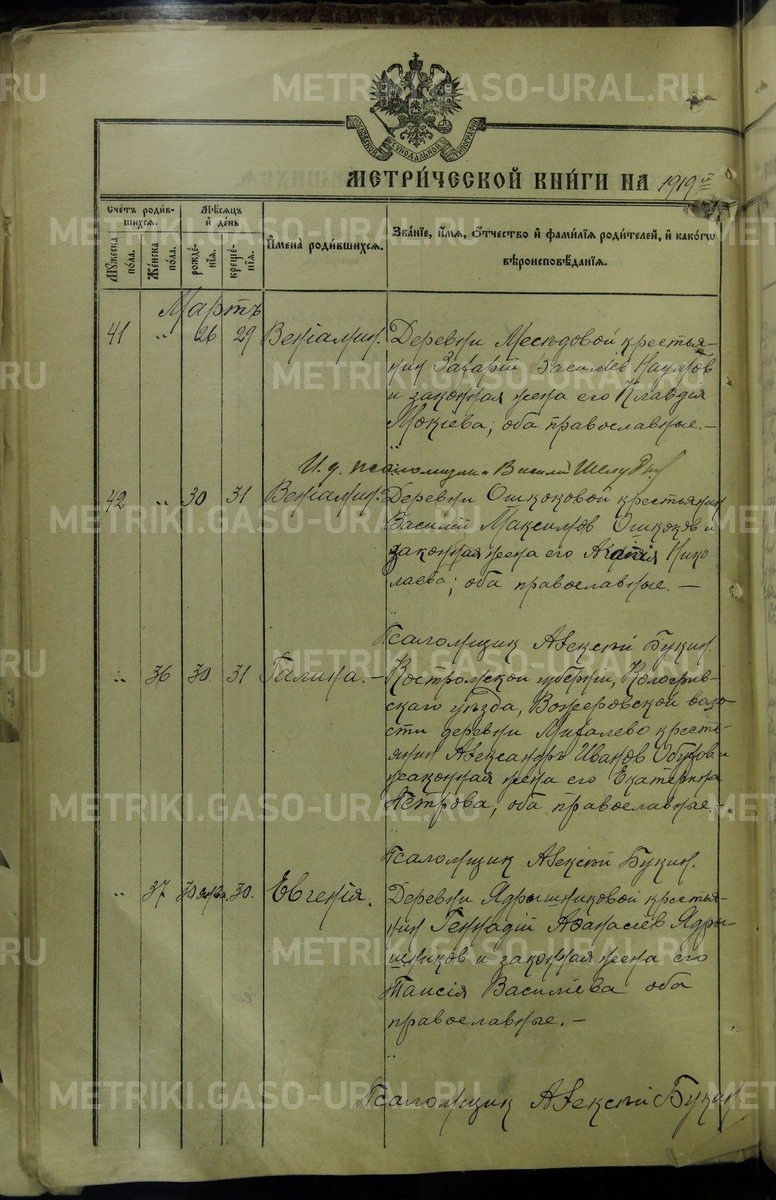 METRIKI.GASO-URAL.RU
МОСКОВСКОЙ СѴНОДАЛЬНОЙ ТИПОГРАФІИ
МЕТРИ́ЧЕСКОЙ КНИ́ГИ НА 1919й
Сче́тъ роди́вшихсѧ.
Мꙋ́жеска по́ла.
Же́нска по́ла.
Мѣ́сѧцъ и҆ де́нь
рожде́нїѧ.
креще́нїѧ.
И҆мена̀ роди́вшихсѧ.
Зва́нїе, и҆́мѧ, ѻ҆́тчество и҆ фами́лїѧ роди́телей, и҆ како́гѡ
вѣроисповѣ́данїѧ.
Мартъ
41 " 26 29 Веніамин. Деревни крестья-
нин Захарій Васильев Наумов
и законная жена его Клавдія
Мокіева, оба православные. —
И. д. псаломщика Василій
42 " 30 31 Веніамин. Деревни Ошкоковой крестьянин
Василій Максимов Ошкоков и
законная жена его Нико-
лаева; оба православные. —
Псаломщик Алексій Букин.
" 36 30 31 Галина. — Костромской губерніи, Кологрив-
скаго уѣзда, воло-
сти деревни Михалево кресть-
янин Александръ Иванов и
законная жена его Екатерина
Петрова, оба православные. —
Псаломщик Алексій Букин.
" 37 30 30. Евгенія. Деревни Ядрышниковой крестья-
нин Геннадій Аѳанасіев Ядры-
шников и законная жена его
Таисія Васильева оба
православные. —
Псаломщик Алексій Букин.